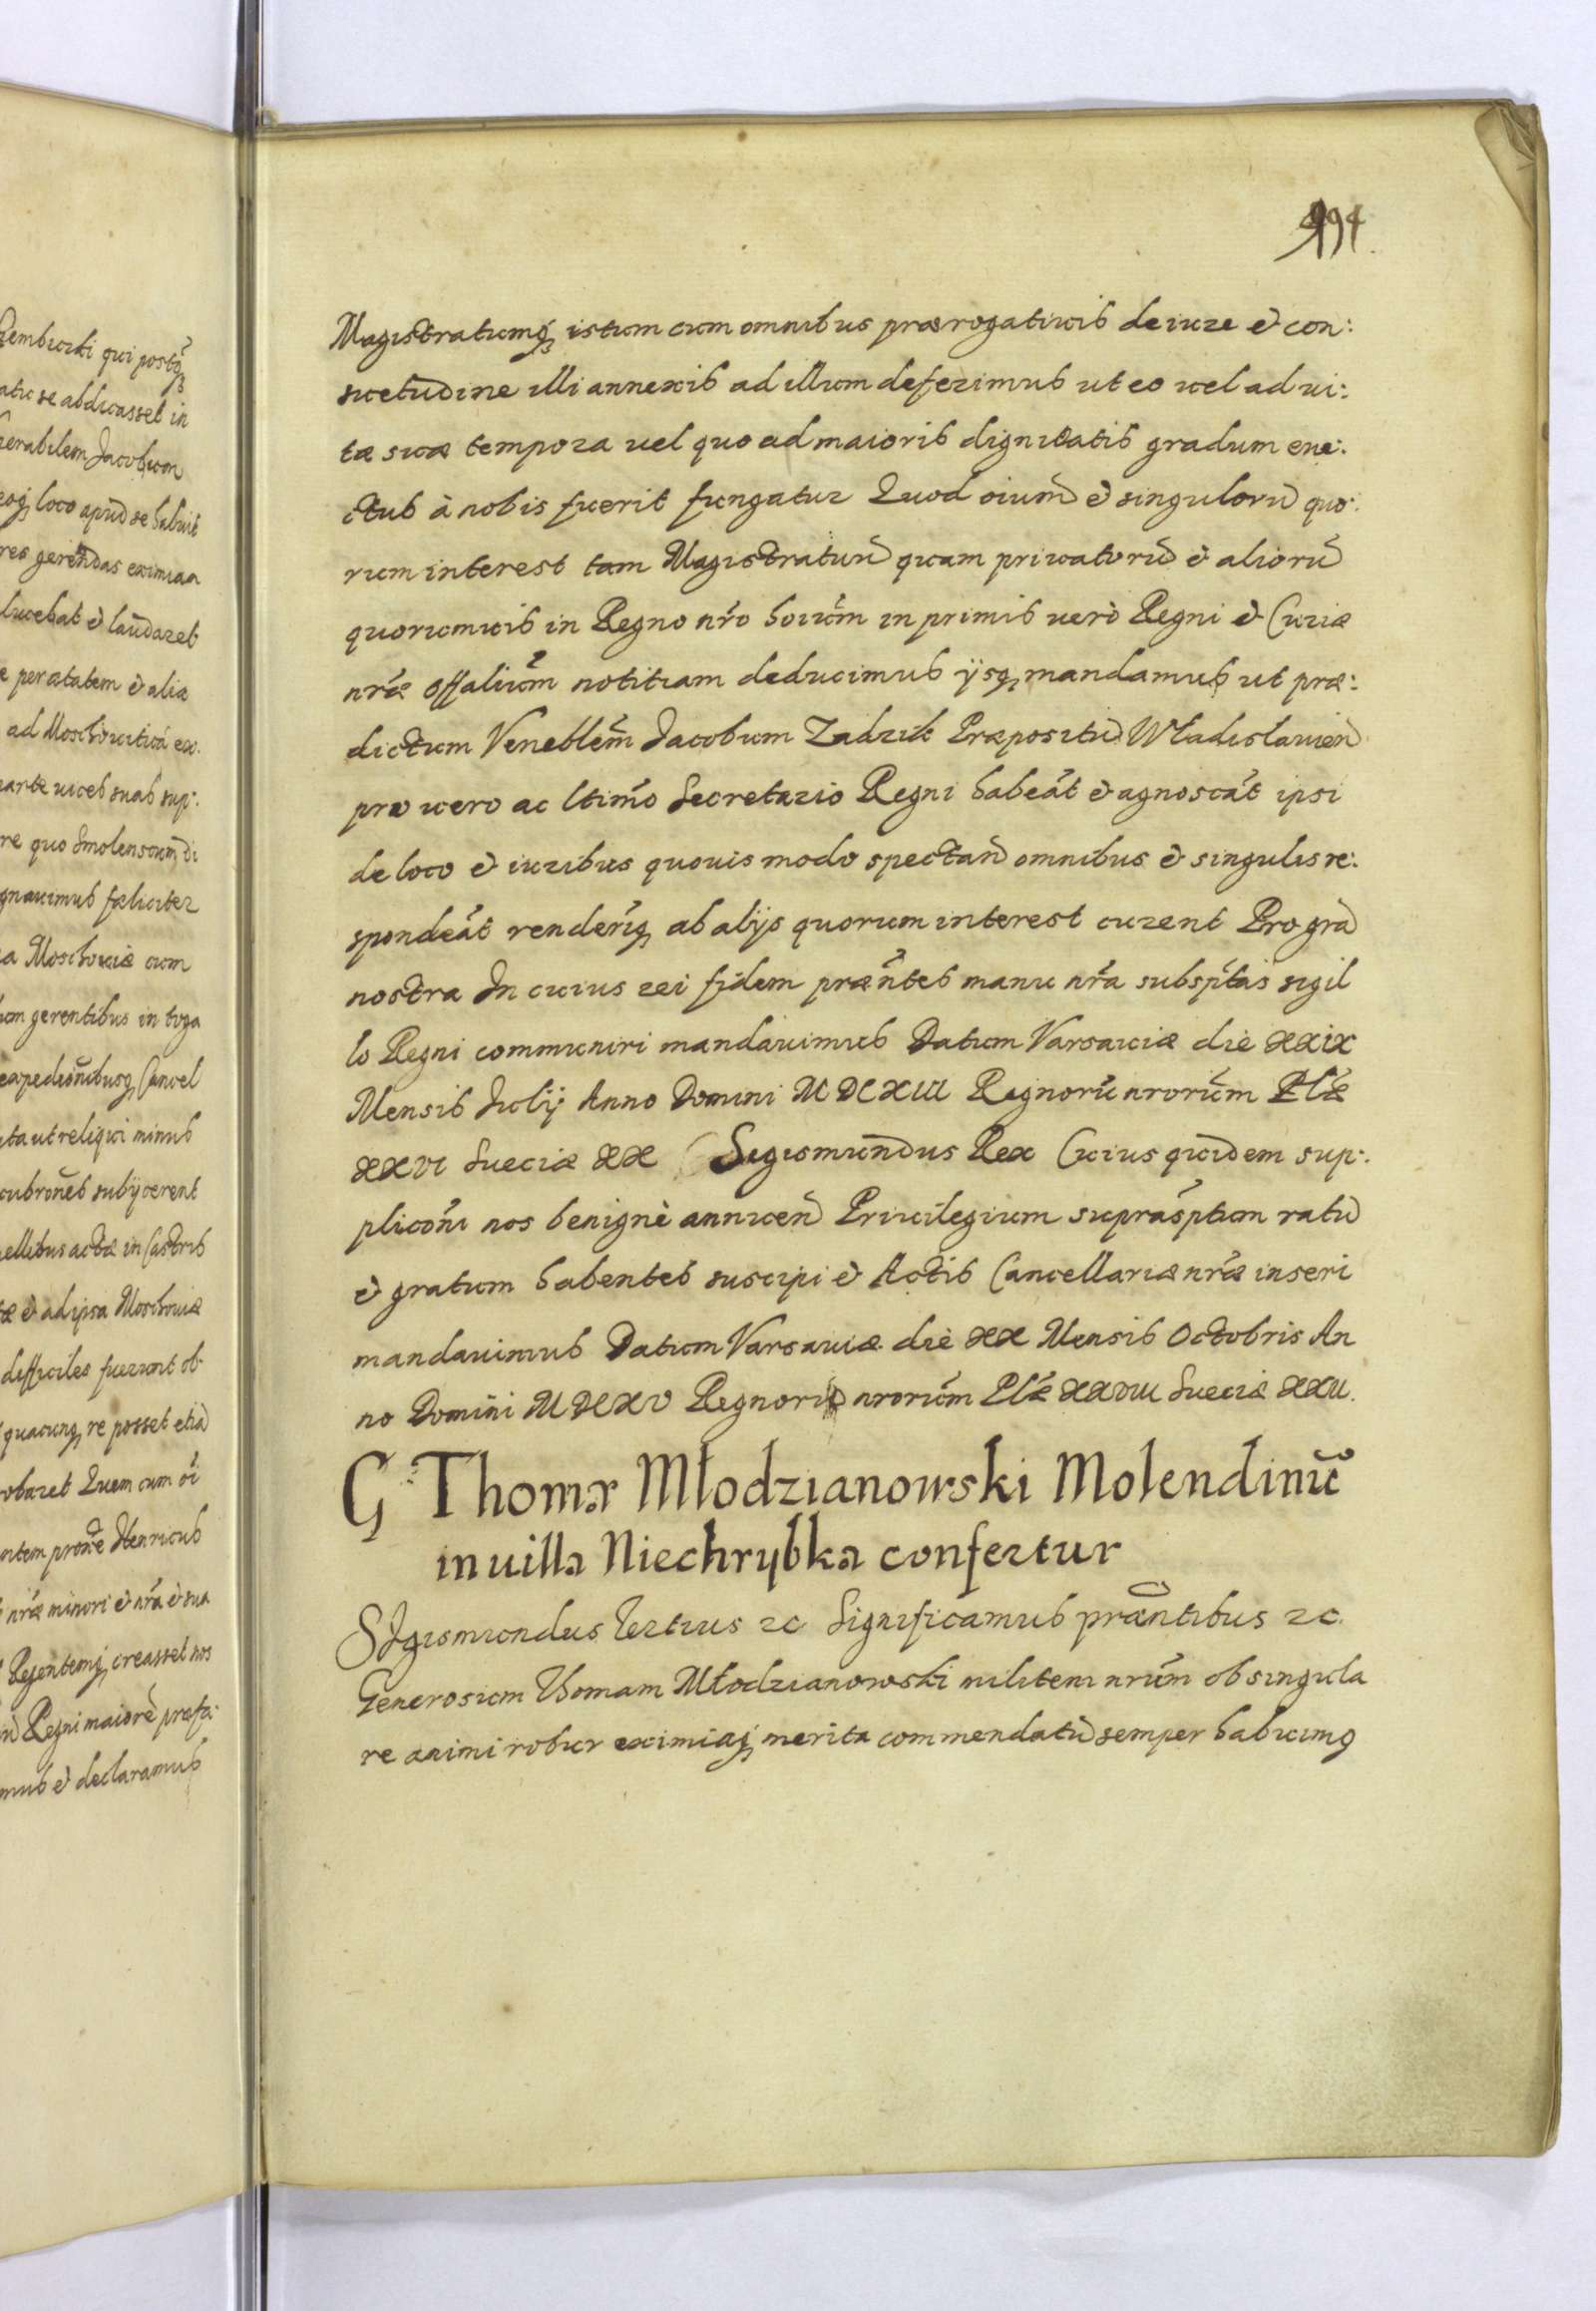 Rembiczki qui postq́
atu se abdicasset in
nerabilem Jacobum
eoq loco apud se habuit
res gerendas eximiaa
lucebat et laudaret
e per ætatem et alia
ad Moschouiticá ex:
parte uices suas sup:
re quo Smolenscum di
gnauimus fæliciter
a Moschouiæ cum
um gerentibus in toga
expedionibusq Cancel
ita ut reliqui minus
cubrones subijcerent
ellibus acta in Castris
æ et ad ipsa Moschouiæ
difficiles fuerunt ob
quacunq re posset etiā
obaret Quem cum oi
ntem prone Henricus
nræ minori et nrā et sua
Regentemq creasset nos
Regni maiorē præfa:
mus et declaramus
494.
Magistratumq istum cum omnibus prærogatiuis de iure et con:
suetudine illi annexis ad illum deferimus ut eo uel ad ui:
tæ suæ tempora uel quo ad maioris dignitatis gradum eue:
ctus à nobis fuerit fungatur Quod oium et singuloru quo:
rum interest tam Magistratuu quam priuatoru et alioru
quorumuis in Regno nro hoium in primis uerò Regni et Curiæ
nræ offalium notitiam deducimus ijsq mandamus ut præ:
dictum Veneblem Jacobum Zadzik Præpositu Władislauien
pro uero ac ltimo Secretario Regni habeāt et agnoscāt ipsi
de loco et iuribus quouis modo spectan omnibus et singulis re:
spondeāt renderiq ab alijs quorum interest curent Pro gra
nostra In cuius rei fidem præntes manu nra subsptas sigil
lo Regni communiri mandauimus Datum Varsauiæ die XXIX
Mensis Julij Anno Domini MDCXIII Regnorū nrorum Plæ
XXVI Sueciæ XX Sigismundus Rex Cuius quidem sup:
pliconi nos benignè annuen Priuilegium suprasptum ratu
et gratum habentes suscipi et Actis Cancellariæ nræ inseri
mandauimus Datum Varsauiæ die XX Mensis Octobris An
no Domini MDCXV Regnoru nrorum Plæ XXVIII Sueciæ XXII.
G: Thomæ Młodzianowski Molendinū
in uilla Niechrybka confertur
SIgismundus Tertius ꝛc Significamus præntibus ꝛc.
Generosum Thomam Młodzianowski militem nrum ob singula
re animi robur eximiaq merita commendatu semper habuimq